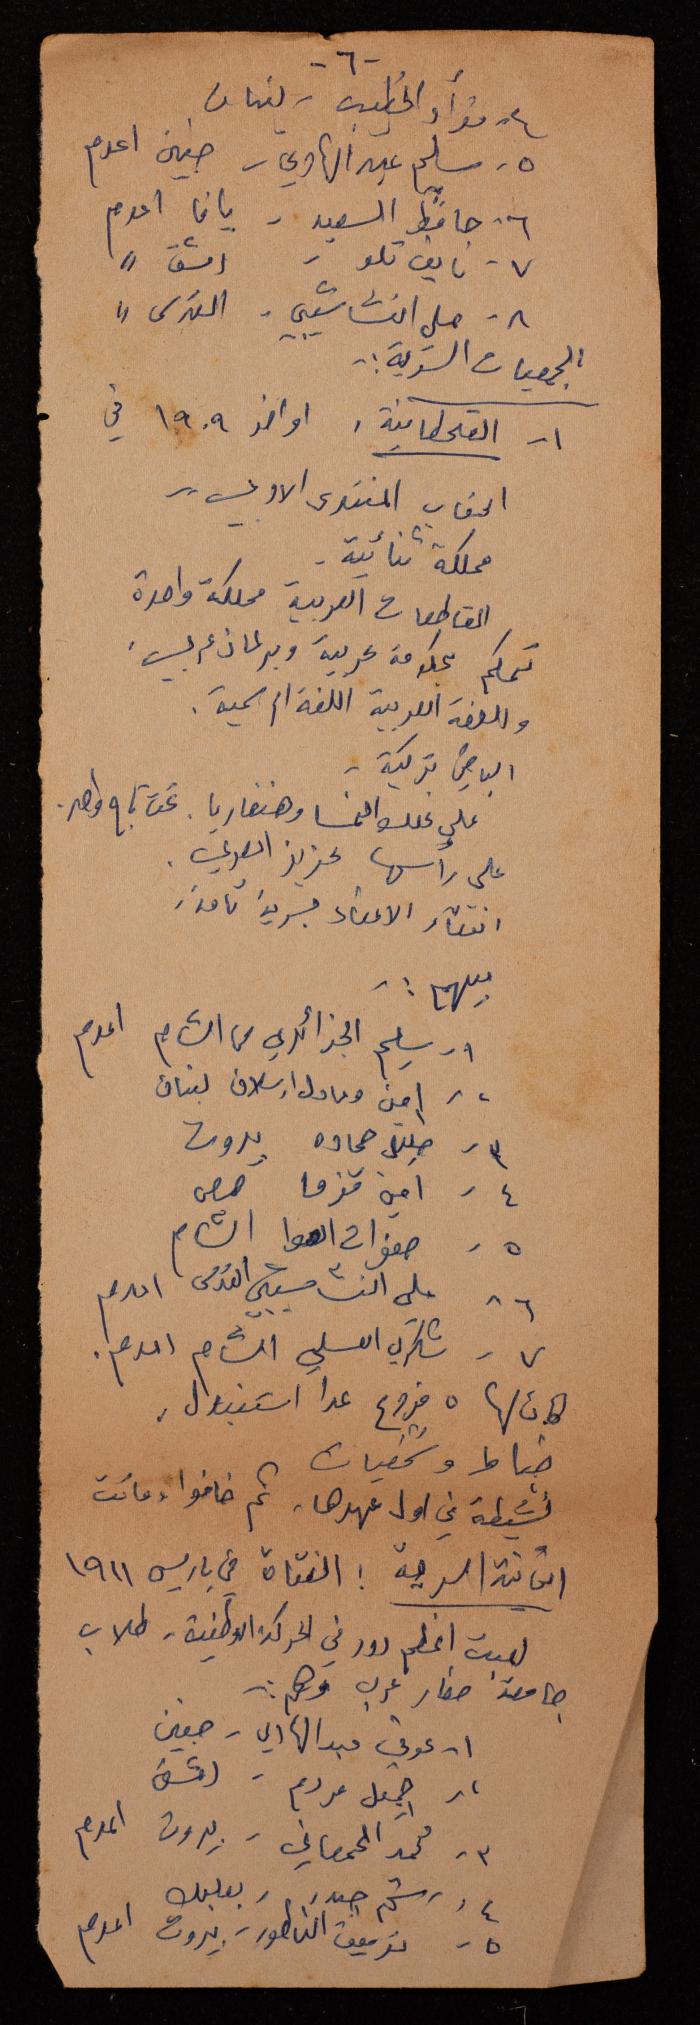 - ٦ -
٤- فؤاد الخطيب - لبنان
٥- سليم عبد الهادي - جنين اعدم
٦- حافظ السعيد - يافا اعدم
٧- نايف تلو - دمشق "
٨- علي النشاشيبي - القدس "
الجمعيات السرية :-
١- القحطانية ، اواخر ١٩٠٩ في
اعقاب المنتدى الادبي -
مملكة ثنائية -
المقاطعات العربية مملكة واحدة
تحكم بحكومة عربية وبرلمان عربي ،
واللغة العربية اللغة الرسمية .
الباقي تركية -
على نمط النمسا وهنغاريا . تحت تاج واحد .
على رأسها عزيز المصري .
انتقاء الاعضاء بسرية تامة ،
بينهم :-
١- سليم الجزائري من الشام اعدم
٢- امين وعادل ارسلان لبنان
٣- خليل حماده بيروت
٤- امين قزما حمص
٥- صفوات العوا الشام
٦- علي النشاشيبي القدس اعدم
٧- شكري العسلي الشام اعدم .
كان لها ٥ فروع عدا استنبول ،
ضباط وشخصيات
نشيطة في اول عهدها ، ثم خافوا وماتت
الثانية السرية : الفتاة في باريس ١٩١١
لعبت اعظم دور في الحركة الوطنية - طلاب
جامعة صغار عرب وهم :-
١- عوني عبد الهادي - جنين
٢- جميل مردم - دمشق
٣- محمد المحمصاني - بيروت اعدم
٤- رستم حيدر - بعلبك
٥- توفيق الناطور - بيروت اعدم